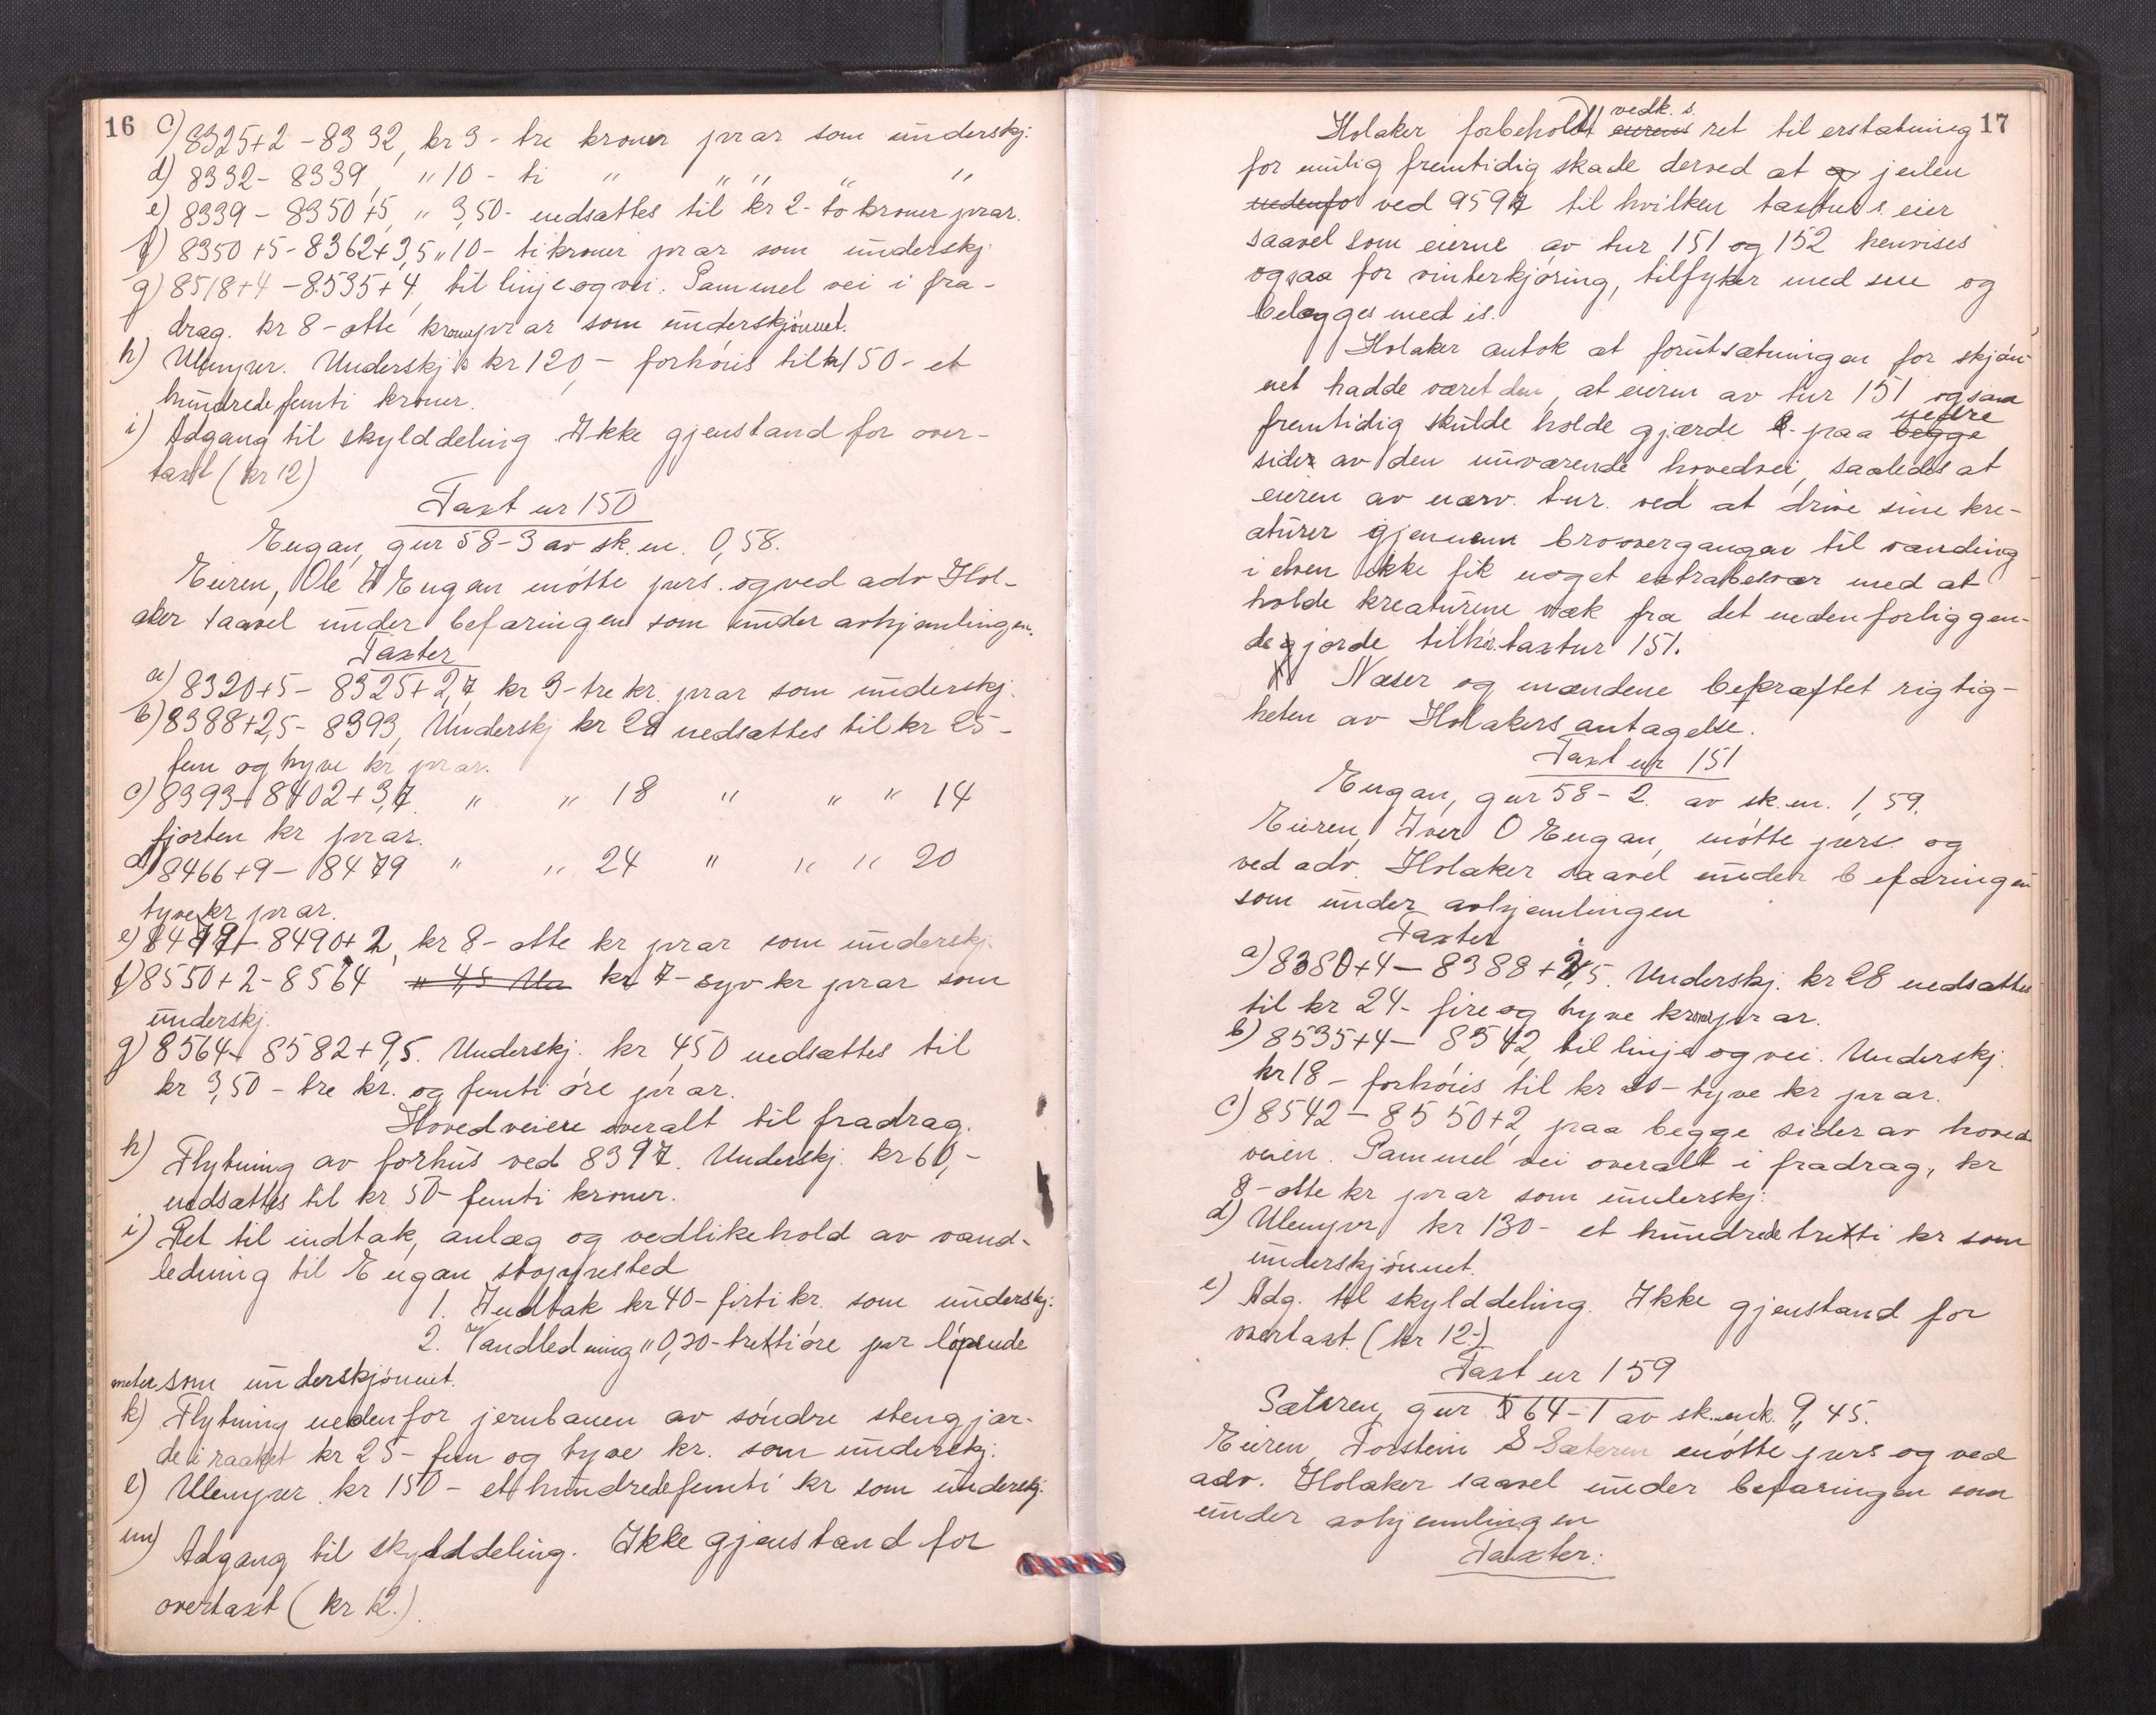 16
c) 8325+2 - 8332, kr 3 - tre kroner pr ar som underskj:
d) 8332 - 8339, " 10 - ti " " " " "
e) 8339 - 8350+5, " 3,50 - nedsættes til kr 2 - to kroner pr ar.
f) 8350+5 - 8362+3,5 " 10 - ti kroner pr ar som underskj.
g) 8518+4 - 8535+4, til linje og vei. Gammel vei i fra-
drag. kr 8 - otte kroner pr ar som underskjønnet.
h) Ulemper. Underskj's kr 120,- forhøies til kr 150 - et
hundrede femti kroner.
i) Adgang til skylddeling. Ikke gjenstand for over-
taxt (kr 12)
Taxt nr 150
Engan, gnr 58-3 av sk.m. 0,58.
Eieren, Ole Engan møtte pers. og ved adv Hol-
aker saavel under befaringen som under avhjemlingen.
Taxter
a) 8320+5 - 8325+2,7 kr 3 - tre kr. pr ar som underskj.
b) 8388+2,5 - 8393, Underskj kr 28 nedsættes til kr 25 -
fem og tyve kr pr ar.
c) 8393 - 8402+3,7 " " 18 " " " 14
fjorten kr pr ar.
d) 8466+9 - 8479 " " 24 " " " 20
tyve kr pr ar.
e) 8479 - 8490+2, kr 8 - otte kr pr ar som underskj.
f) 8550+2 - 8564 " 4,5 Un kr 7 - syv kr pr ar som
underskj.
g) 8564 - 8582+9,5. Underskj. kr 4,50 nedsættes til
kr 3,50 - tre kr. og femti øre pr ar.
Hovedveien overalt til fradrag.
h) Flytning av forhus ved 8397. Underskj. kr 60,-
nedsættes til kr 50 - femti kroner.
i) Ret til indtak, anlæg og vedlikehold av vand-
ledning til Engan stoppested
1. Indtak kr 40 - firti kr. som underskj:
2. Vandledning " 0,30 - tretti øre pr løpende
meter som underskjønnet.
k) Flytning nedenfor jernbanen av søndre stengjær-
de i raaket kr 25 - fem og tyve kr. som underskj:
l) Ulemper kr 150 - et hundrede femti kr som underskj.
m) Adgang til skylddeling. Ikke gjenstand for
overtaxt (kr 12.).
17
Holaker forbeholdt eierens vedk. s. ret til erstatning
for mulig fremtidig skade derved at og jeilen
nedenfo ved 9597 til hvilken taxtnr s. eier
saavel som eierne av tnr 151 og 152 henvises
ogsaa for vinterkjøring, tilfyker med sne og
belægges med is.
Holaker antok at forutsætningen for skjøn-
net hadde været den, at eieren av tnr 151 ogsaa
fremtidig skulde holde gjærde paa begge nedre
side av den nuværende hovedvei, saaledes at
eieren av nærv. tnr. ved at drive sine kre-
aturer gjennem broovergangen til vanding
i elven ikke fik noget extrabesvær med at
holde kreaturene væk fra det nedenforliggen-
de gjorde tilhør. taxtnr 151.
Næser og mændene bekræftet rigtig-
heten av Holakers antagelse.
Taxt nr 151
Engan, gnr 58 - 2. av sk.m. 1,59.
Eieren, Iver O Engan, møtte pers. og
ved adv. Holaker saavel under befaringen
som under avhjemlingen
Taxter
a) 8380+4 - 8388+2,5. Underskj. kr 28 nedsættes
til kr 24 - fire og tyve kroner pr ar.
b) 8535+4 - 8542, til linje og vei. Underskj.
kr 18 - forhøies til kr 20 - tyve kr pr ar.
c) 8542 - 8550+2, paa begge sider av hoved
veien. Gammel vei overalt i fradrag, kr
8 - otte kr pr ar som underskj:
d) Ulemper kr 130 - et hundrede tretti kr som
underskjønnet.
e) Adg. til skylddeling. Ikke gjenstand for
overtaxt. (kr 12-)
Taxt nr 159
Sæteren, gnr 64 - 1 av sk.mk. 9,45.
Eieren Torstein S Sæteren møtte pers og ved
adv. Holaker saavel under befaringen som
under avhjemlingen
Taxter: